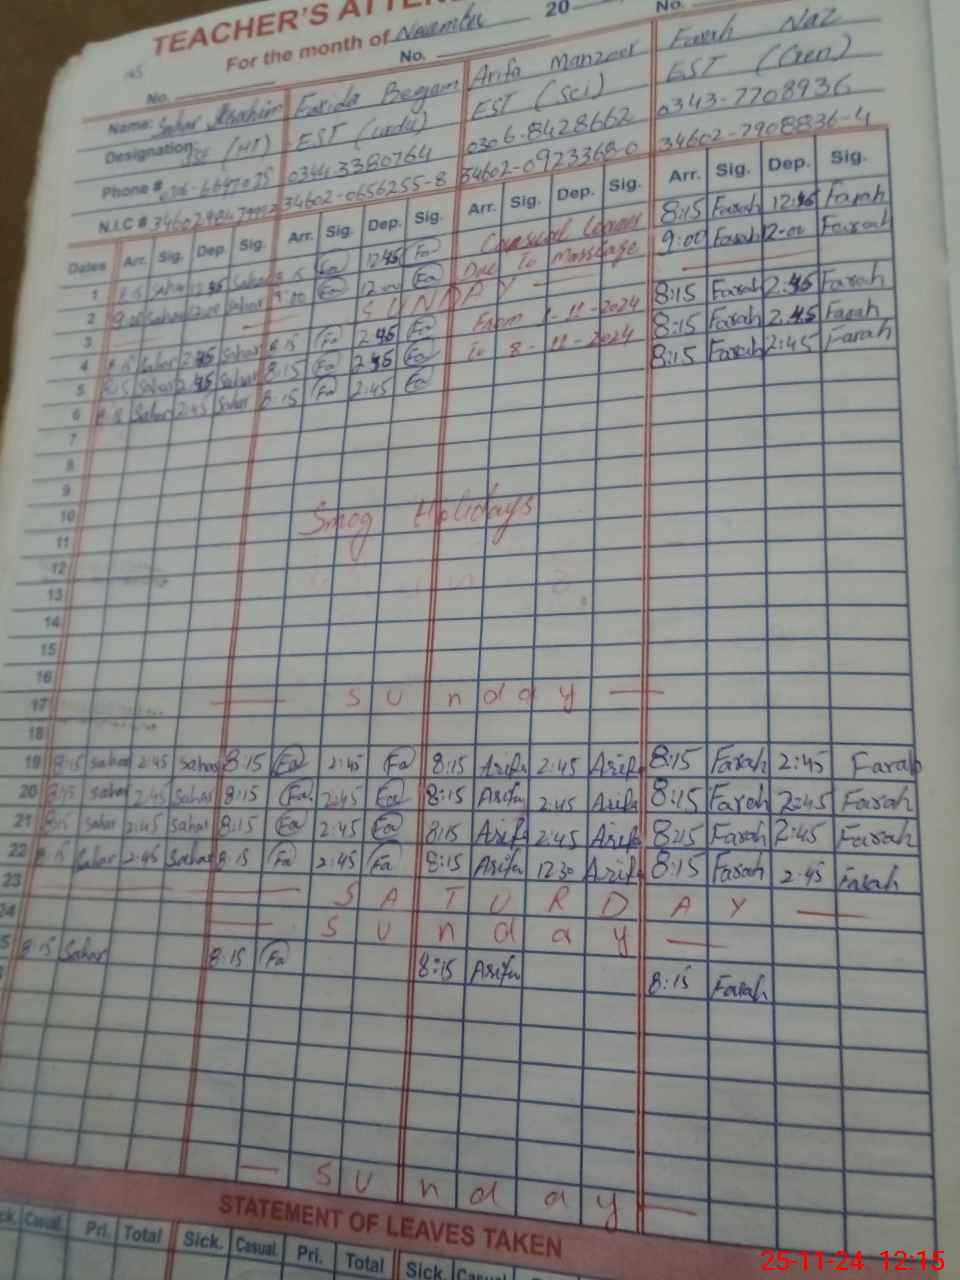 TEACHER'S ATTEN
For the month of November 20
No. No. No.
Name: Sahar Farida Begam Arifa Manzoor Farah Naz
Designation: (HT) EST (urdu) EST (Sci) EST (Gen)
Phone # 03443380764 0306-8428662 0343-7708936
N.I.C # 34602-0656255-8 34602-0923368-0 34602-7908836-4
Dates Arr. Sig. Dep. Sig. Arr. Sig. Dep. Sig. Arr. Sig. Dep. Sig. Arr. Sig. Dep. Sig.
1 8:15 Sahar 12:45 Sahar 8:15 Fa 12:45 Fa 8:15 Farah 12:45 Farah
2 9:00 Sahar 12:00 Sahar 9:00 Fa 12:00 Fa Due To 9:00 Farah 12:00 Farah
3 SUNDAY
4 8:15 Sahar 2:45 Sahar 8:15 Fa 2:45 Fa From 1-11-2024 8:15 Farah 2:45 Farah
5 8:15 Sahar 2:45 Sahar 8:15 Fa 2:45 Fa To 8-11-2024 8:15 Farah 2:45 Farah
6 8:15 Sahar 2:45 Sahar 8:15 Fa 2:45 Fa 8:15 Farah 2:45 Farah
7
8
9
10 Smog Holidays
11
12
13
14
15
16
17 Sunday
18
19 8:15 Sahar 2:45 Sahar 8:15 Fa 2:45 Fa 8:15 Arifa 2:45 Arifa 8:15 Farah 2:45 Farah
20 8:15 Sahar 2:45 Sahar 8:15 Fa 2:45 Fa 8:15 Arifa 2:45 Arifa 8:15 Farah 2:45 Farah
21 8:15 Sahar 2:45 Sahar 8:15 Fa 2:45 Fa 8:15 Arifa 2:45 Arifa 8:15 Farah 2:45 Farah
22 8:15 Sahar 2:45 Sahar 8:15 Fa 2:45 Fa 8:15 Arifa 12:30 Arifa 8:15 Farah 2:45 Farah
23 SATURDAY
24 Sunday
5 8:15 Sahar 8:15 Fa 8:15 Arifa 8:15 Farah
Sunday
STATEMENT OF LEAVES TAKEN
ck. Casual. Pri. Total Sick. Casual. Pri. Total Sick. Casual
25-11-24 12:15